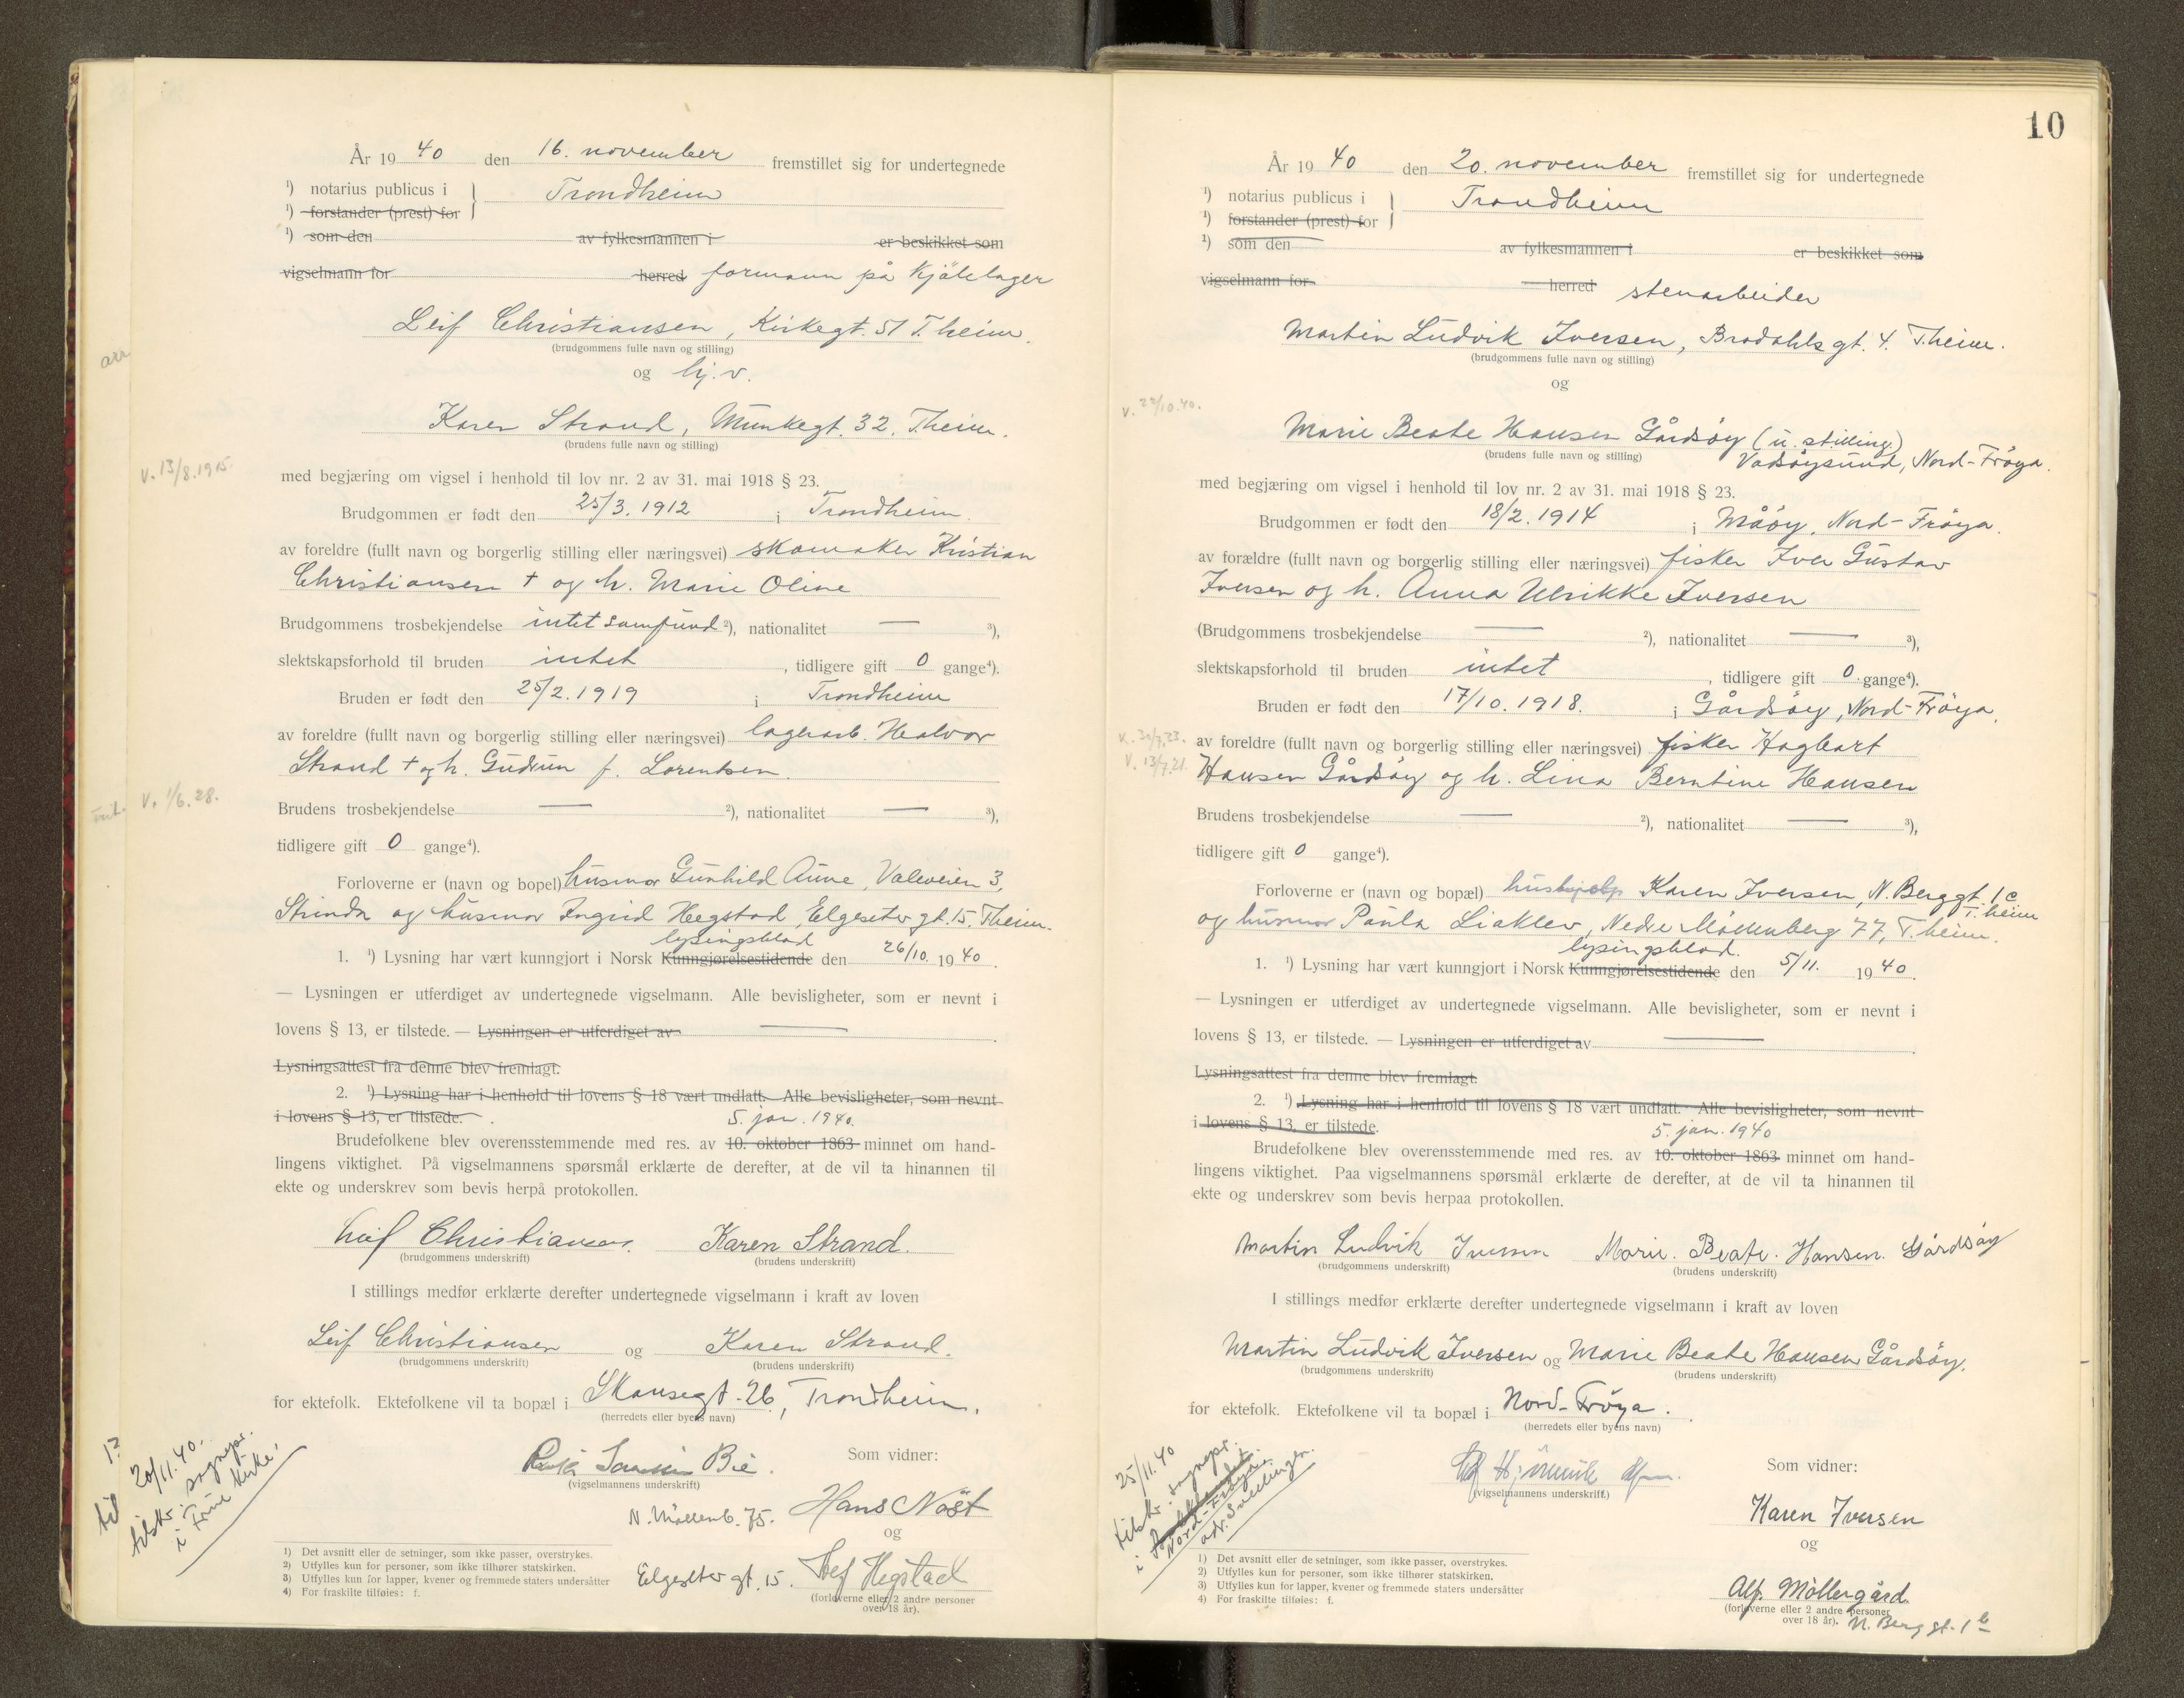 År 1940 den 16. november fremstillet sig for undertegnede
¹) notarius publicus i } Trondheim
¹) forstander (prest) for
¹) som den av fylkesmannen i er beskikket som
vigselmann for herred formann på Kjølelager
Leif Christiansen, Kirkegt. 51 T.heim.
(brudgommens fulle navn og stilling)
og hj.v.
Karen Strand, Munkegt. 32, T.heim.
(brudens fulle navn og stilling)
V. 13/8.1915.
med begjæring om vigsel i henhold til lov nr. 2 av 31. mai 1918 § 23.
Brudgommen er født den 25/3. 1912 i Trondheim.
av foreldre (fullt navn og borgerlig stilling eller næringsvei) skomaker Kristian
Christiansen † og h. Marie Oline
Brudgommens trosbekjendelse intet samfund ²), nationalitet — ³),
slektskapsforhold til bruden intet, tidligere gift 0 gange⁴).
Bruden er født den 25/2. 1919 i Trondheim
av foreldre (fullt navn og borgerlig stilling eller næringsvei) lagerarb. Halvor
Strand † og h. Gudrun f. Lorentsen.
V. 1/6.28.
Brudens trosbekjendelse — ²), nationalitet — ³),
tidligere gift 0 gange⁴).
Forloverne er (navn og bopel) husmor Gunhild Aune, Valeveien 3,
Strinda og husmor Ingrid Hegstad, Elgeseter gt. 15. T.heim.
lysingsblad
1. ¹) Lysning har vært kunngjort i Norsk Kunngjørelsestidende den 26/10. 1940.
— Lysningen er utferdiget av undertegnede vigselmann. Alle bevisligheter, som er nevnt i
lovens § 13, er tilstede. — Lysningen er utferdiget av —
Lysningsattest fra denne blev fremlagt.
2. ¹) Lysning har i henhold til lovens § 18 vært undlatt. Alle bevisligheter, som nevnt
i lovens § 13, er tilstede.
5. jan. 1940.
Brudefolkene blev overensstemmende med res. av 10. oktober 1863 minnet om hand-
lingens viktighet. På vigselmannens spørsmål erklærte de derefter, at de vil ta hinannen til
ekte og underskrev som bevis herpå protokollen.
Leif Christiansen. Karen Strand.
(brudgommens underskrift) (brudens underskrift)
I stillings medfør erklærte derefter undertegnede vigselmann i kraft av loven
Leif Christiansen og Karen Strand.
(brudgommens underskrift) (brudens underskrift)
for ektefolk. Ektefolkene vil ta bopæl i Skansegt. 26, Trondheim.
(herredets eller byens navn)
20/11.40.
tilskr. sognepr.
i Frue kirke
Bie. Som vidner:
(vigselmannens underskrift)
N. Möllenb. 75. Hans Nöst
og
Elgeseter gt. 15. Hegstad
(forloverne eller 2 andre personer
over 18 år).
1) Det avsnitt eller de setninger, som ikke passer, overstrykes.
2) Utfylles kun for personer, som ikke tilhører statskirken.
3) Utfylles kun for lapper, kvener og fremmede staters undersåtter
4) For fraskilte tilføies: f.
10
År 1940 den 20. november fremstillet sig for undertegnede
¹) notarius publicus i } Trondheim
¹) forstander (prest) for
¹) som den av fylkesmannen i er beskikket som
vigselmann for herred stenarbeider
Martin Ludvik Iversen, Brodahls gt. 4. T.heim.
(brudgommens fulle navn og stilling)
og
V. 22/10.40.
Marie Beate Hansen Gårdsöy (u. stilling)
(brudens fulle navn og stilling) Vadsöysund, Nord-Fröya.
med begjæring om vigsel i henhold til lov nr. 2 av 31. mai 1918 § 23.
Brudgommen er født den 18/2. 1914 i Måöy, Nord-Fröya.
av forældre (fullt navn og borgerlig stilling eller næringsvei) fisker Iver Gustav
Iversen og h. Anna Ulrikke Iversen
(Brudgommens trosbekjendelse — ²), nationalitet — ³),
slektskapsforhold til bruden intet, tidligere gift 0 gange⁴).
Bruden er født den 17/10. 1918. i Gårdsöy, Nord-Fröya.
av foreldre (fullt navn og borgerlig stilling eller næringsvei) fisker Hagbart
V. 13/7.21.
Hansen Gårdsöy og h. Lina Berntine Hansen
Brudens trosbekjendelse — ²), nationalitet — ³),
tidligere gift 0 gange⁴).
Forloverne er (navn og bopæl) hushjelp Karen Iversen, N. Berggt. 1c
T.heim
og husmor Paula Liaklev, Nedre Möllenberg 77, T.heim.
lysingsblad.
1. ¹) Lysning har vært kunngjort i Norsk Kunngjørelsestidende den 5/11. 1940.
— Lysningen er utferdiget av undertegnede vigselmann. Alle bevisligheter, som er nevnt i
lovens § 13, er tilstede. — Lysningen er utferdiget av —
Lysningsattest fra denne blev fremlagt.
2. ¹) Lysning har i henhold til lovens § 18 vært undlatt. Alle bevisligheter, som nevnt
i lovens § 13, er tilstede.
5. jan. 1940
Brudefolkene blev overensstemmende med res. av 10. oktober 1863 minnet om hand-
lingens viktighet. Paa vigselmannens spørsmål erklærte de derefter, at de vil ta hinannen til
ekte og underskrev som bevis herpaa protokollen.
Martin Ludvik Iversen Marie. Beate. Hansen. Gårdsöy
(brudgommens underskrift) (brudens underskrift)
I stillings medfør erklærte derefter undertegnede vigselmann i kraft av loven
Martin Ludvik Iversen og Marie Beate Hansen Gårdsöy.
(brudgommens underskrift) (brudens underskrift)
for ektefolk. Ektefolkene vil ta bopæl i Nord-Fröya.
(herredets eller byens navn)
25/11.40
tilskr. sognepr.
i
Nord-Fröya.
adr. Svellingen.
Som vidner:
(vigselmannens underskrift.)
Karen Iversen
og
Alf. Möllergård.
(forloverne eller 2 andre personer
over 18 år). N. Berg gt. 1 b
1) Det avsnitt eller de setninger, som ikke passer, overstrykes.
2) Utfylles kun for personer, som ikke tilhører statskirken.
3) Utfylles kun for lapper, kvener og fremmede staters undersåtter
4) For fraskilte tilføies: f.